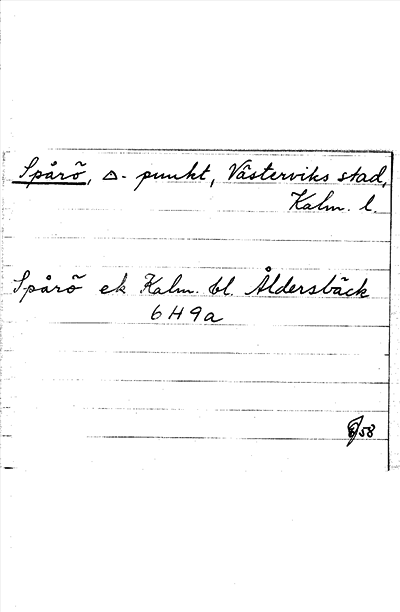 Spårö, △-punkt, Västerviks stad,
Kalm. l.
Spårö ek Kalm. bl. Åldersbäck
6H9a
/58